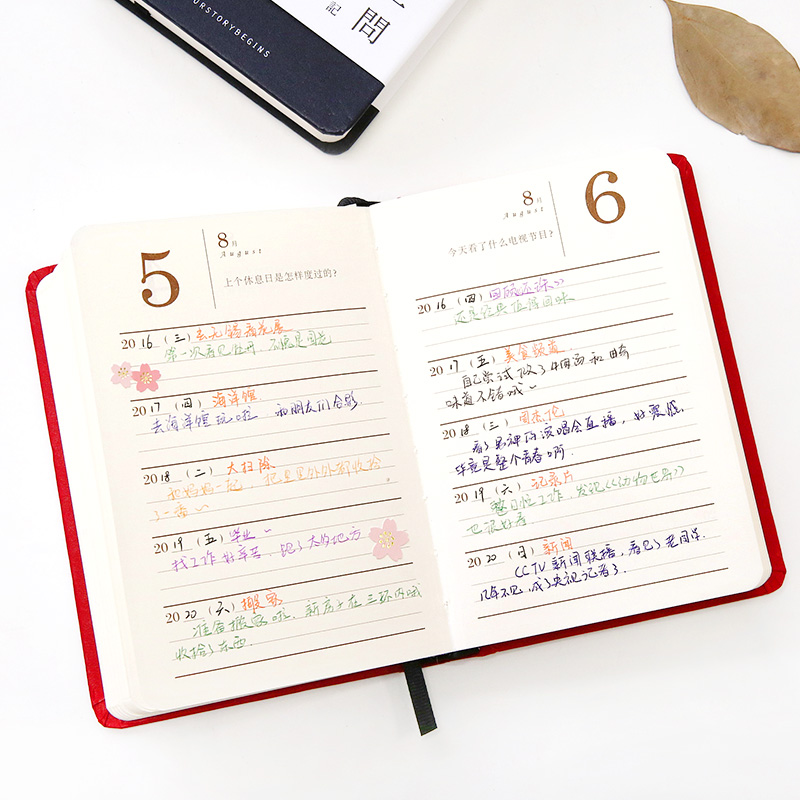 問
記
URSTORYBEGINS
5
8月
August
上个休息日是怎样度过的?
2016 (三) 去无锡看花展
第一次看见牡丹,不愧是国花
2017 (四) 海洋馆
去海洋馆玩啦 和朋友们合影
2018 (二) 大扫除
和妈妈一起,把里里外外都收拾
了一番~
2019 (五) 毕业~
找工作好辛苦,跑了大的地方
2020 (六) 搬家
准备搬家啦,新房子在三环内哦
收拾了东西
8月
August
6
今天看了什么电视节目?
2016 (四) 回顾还珠
还是经典值得回味
2017 (五) 美食频道
自己尝试做了
味道不错哦~
2018 (三) 周杰伦
看了男神的演唱会直播,好震撼,
毕竟是整个青春啊
2019 (六) 纪录片
整日忙工作,发现《动物世界》
也很好看
2020 (日) 新闻
CCTV新闻联播,看见了老同学
几年不见,成了央视记者了.